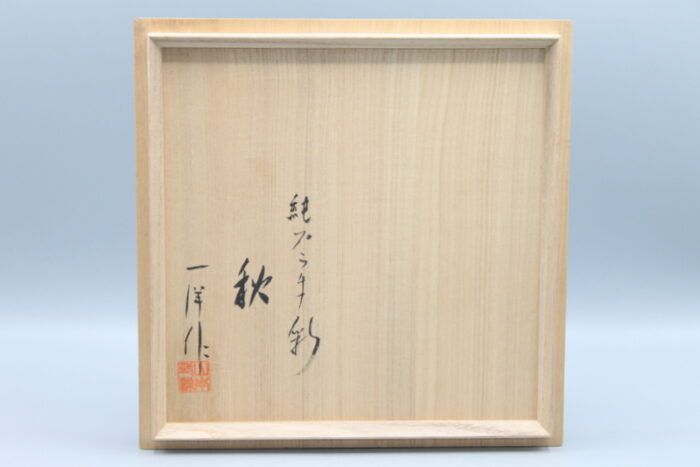 純プラチナ彩
秋
一洋作